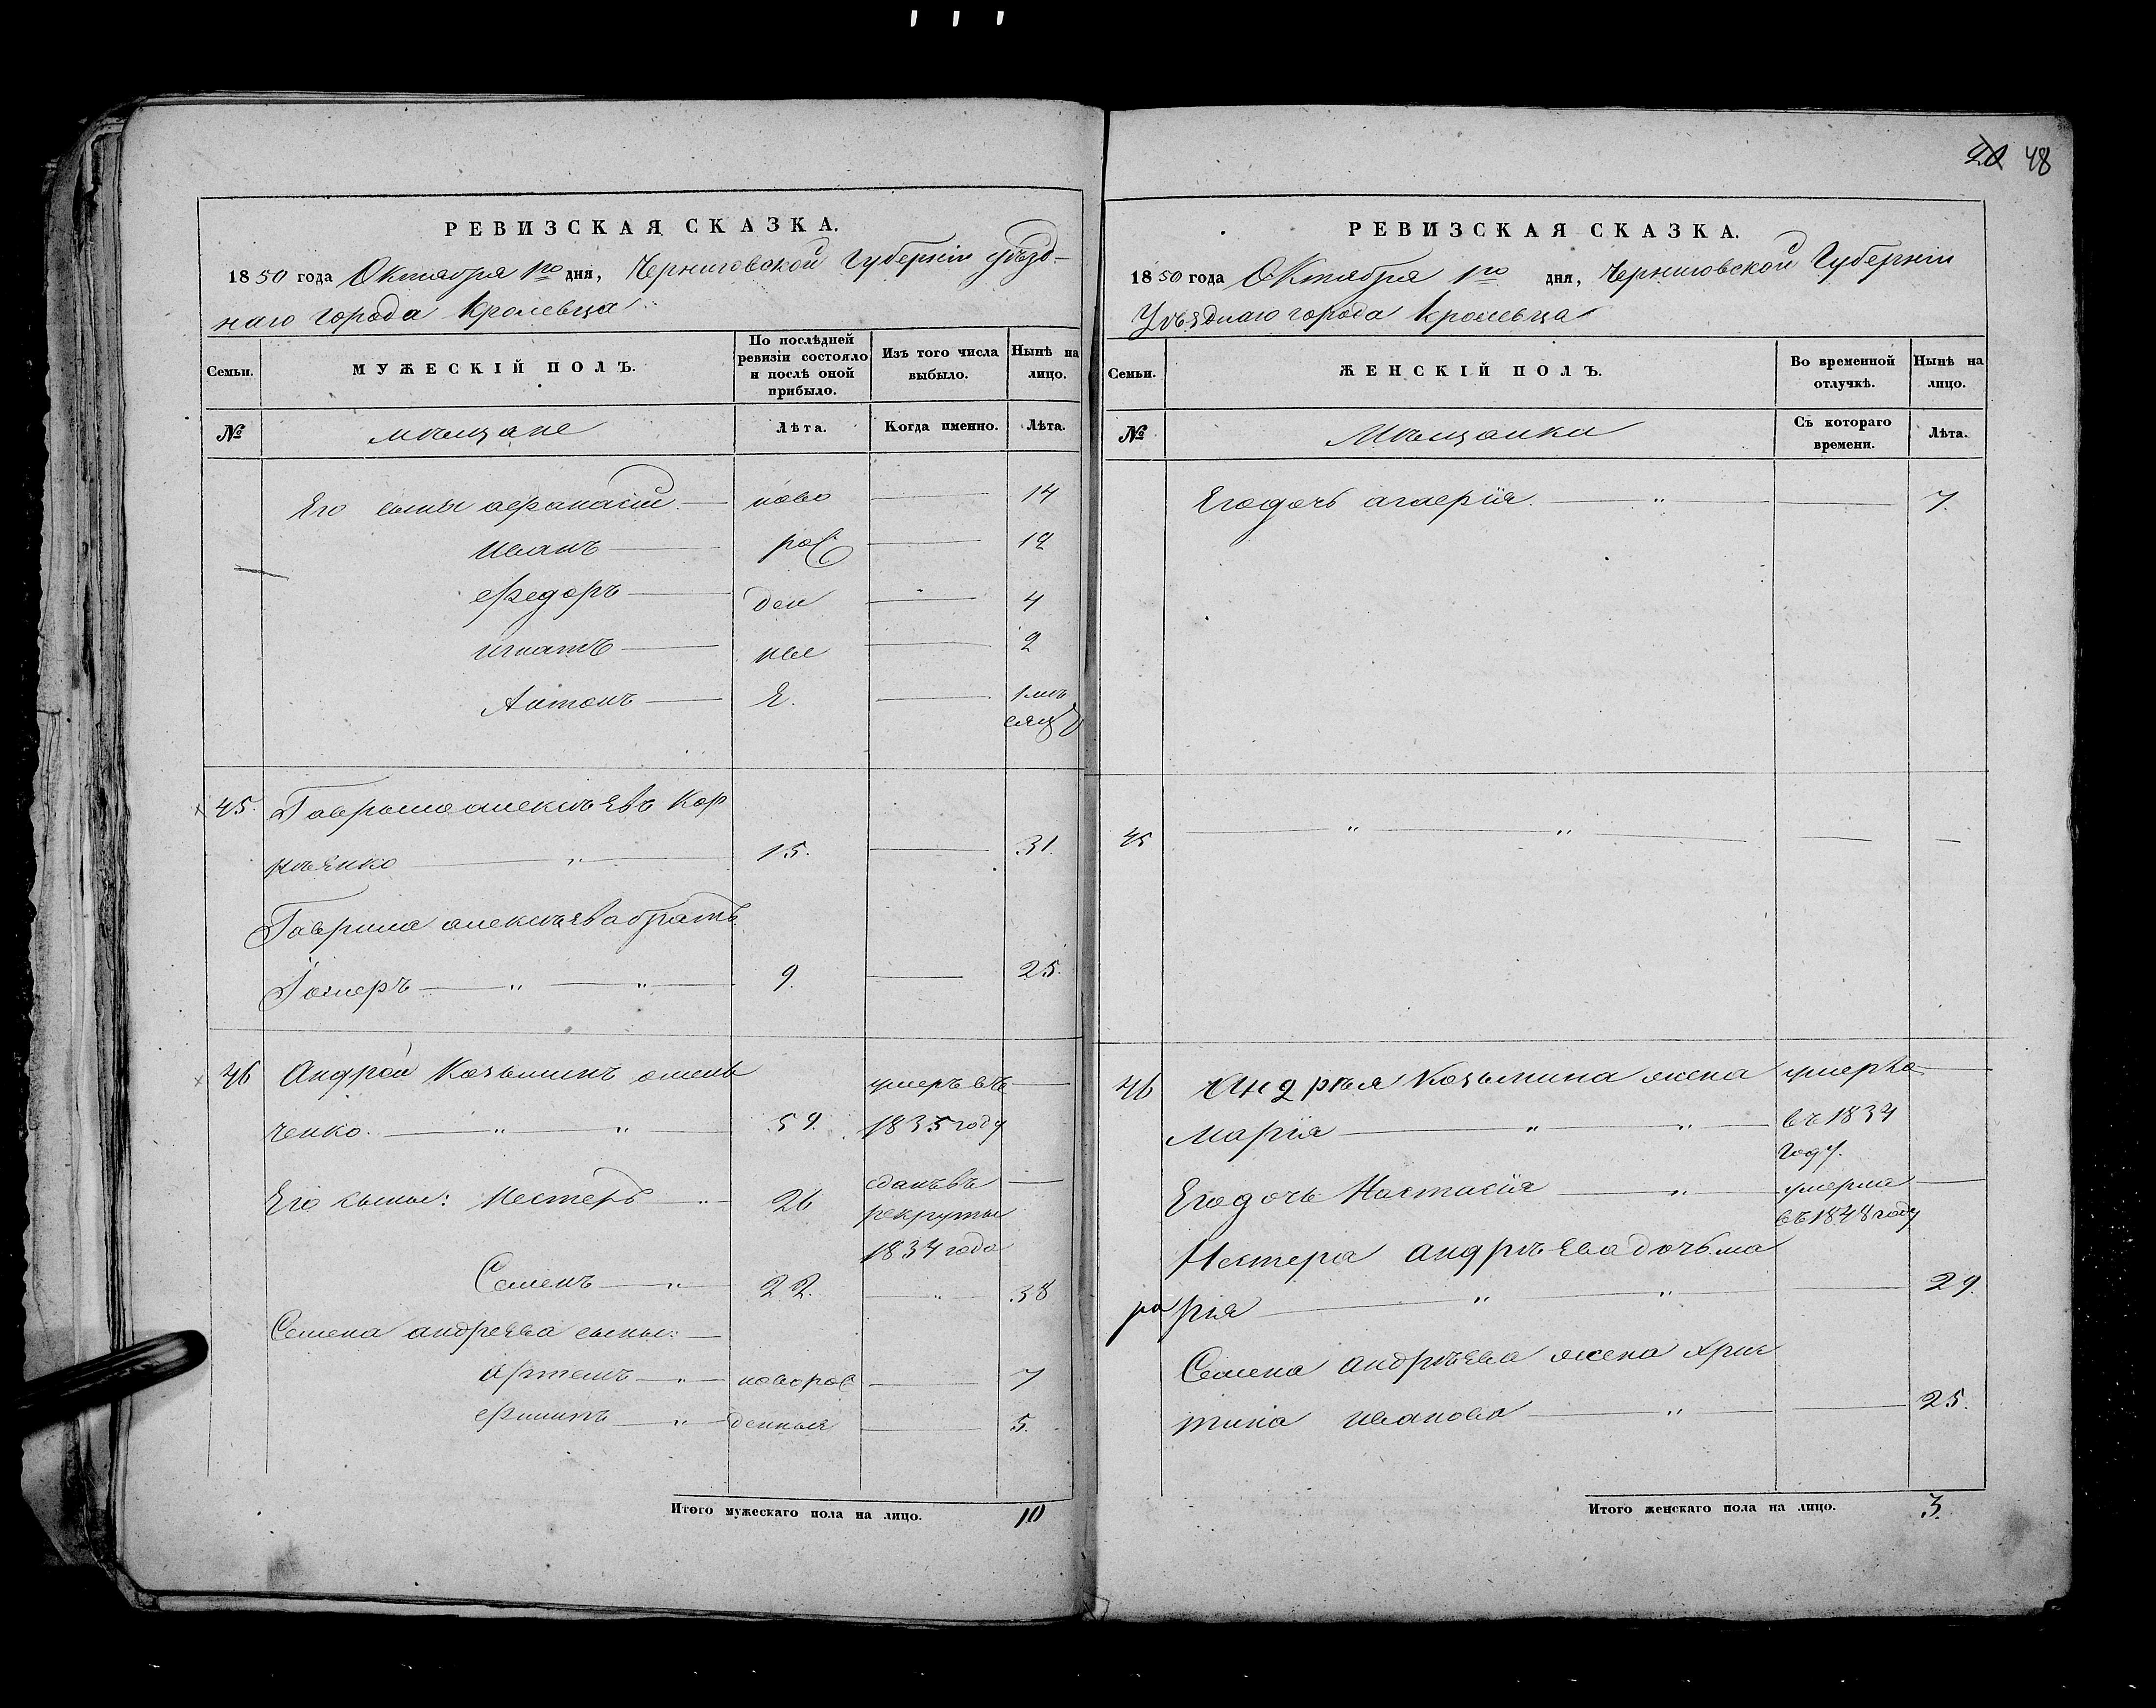 20 48
РЕВИЗСКАЯ СКАЗКА.
1850 года Октября 1го дня, Черниговской Губернiи уѣзд-
наго города Кролевца
Семьи. МУЖЕСКIЙ ПОЛЪ. По послѣдней ревизiи состояло и послѣ оной прибыло. Изъ того числа выбыло. Нынѣ на лицо.
№ мѣщане Лѣта. Когда именно. Лѣта.
Его сыны афанасiй ново 14
иванъ рож 12
федоръ ден 4
игнатъ ныe 2
Антонъ Е. 1 мѣ
сяцъ
45. Гаврило алексѣевъ Кор
нѣенко 15. 31.
Гаврила алексѣева братъ
9. 25.
46 Андрей Козьминъ
ченко. 59. умеръ въ
1835 году
Его сыны: Нестеръ 26 сданъ въ
рекруты
1834 года
Семенъ 22. 38
Семена андреева сыны:
артемъ новорож 7
филипъ денныя 5.
Итого мужескаго пола на лицо. 10
РЕВИЗСКАЯ СКАЗКА.
1850 года Октября 1го дня, Черниговской Губернiи
Уѣзднаго города Кролевца
Семьи. ЖЕНСКIЙ ПОЛЪ. Во временной отлучкѣ. Нынѣ на лицо.
№ Мѣщанки Съ котораго времени. Лѣта.
Его дочь 7.
45
46 Андрѣя Козьмина жена умерла
марiя въ 1834
году.
Его дочь Настасiя умерла
въ 1848 году
Нестера андрѣева дочь ма
ра рiя 29.
Семена андрѣева жена хрис
тина иванова 25.
Итого женскаго пола на лицо. 3.